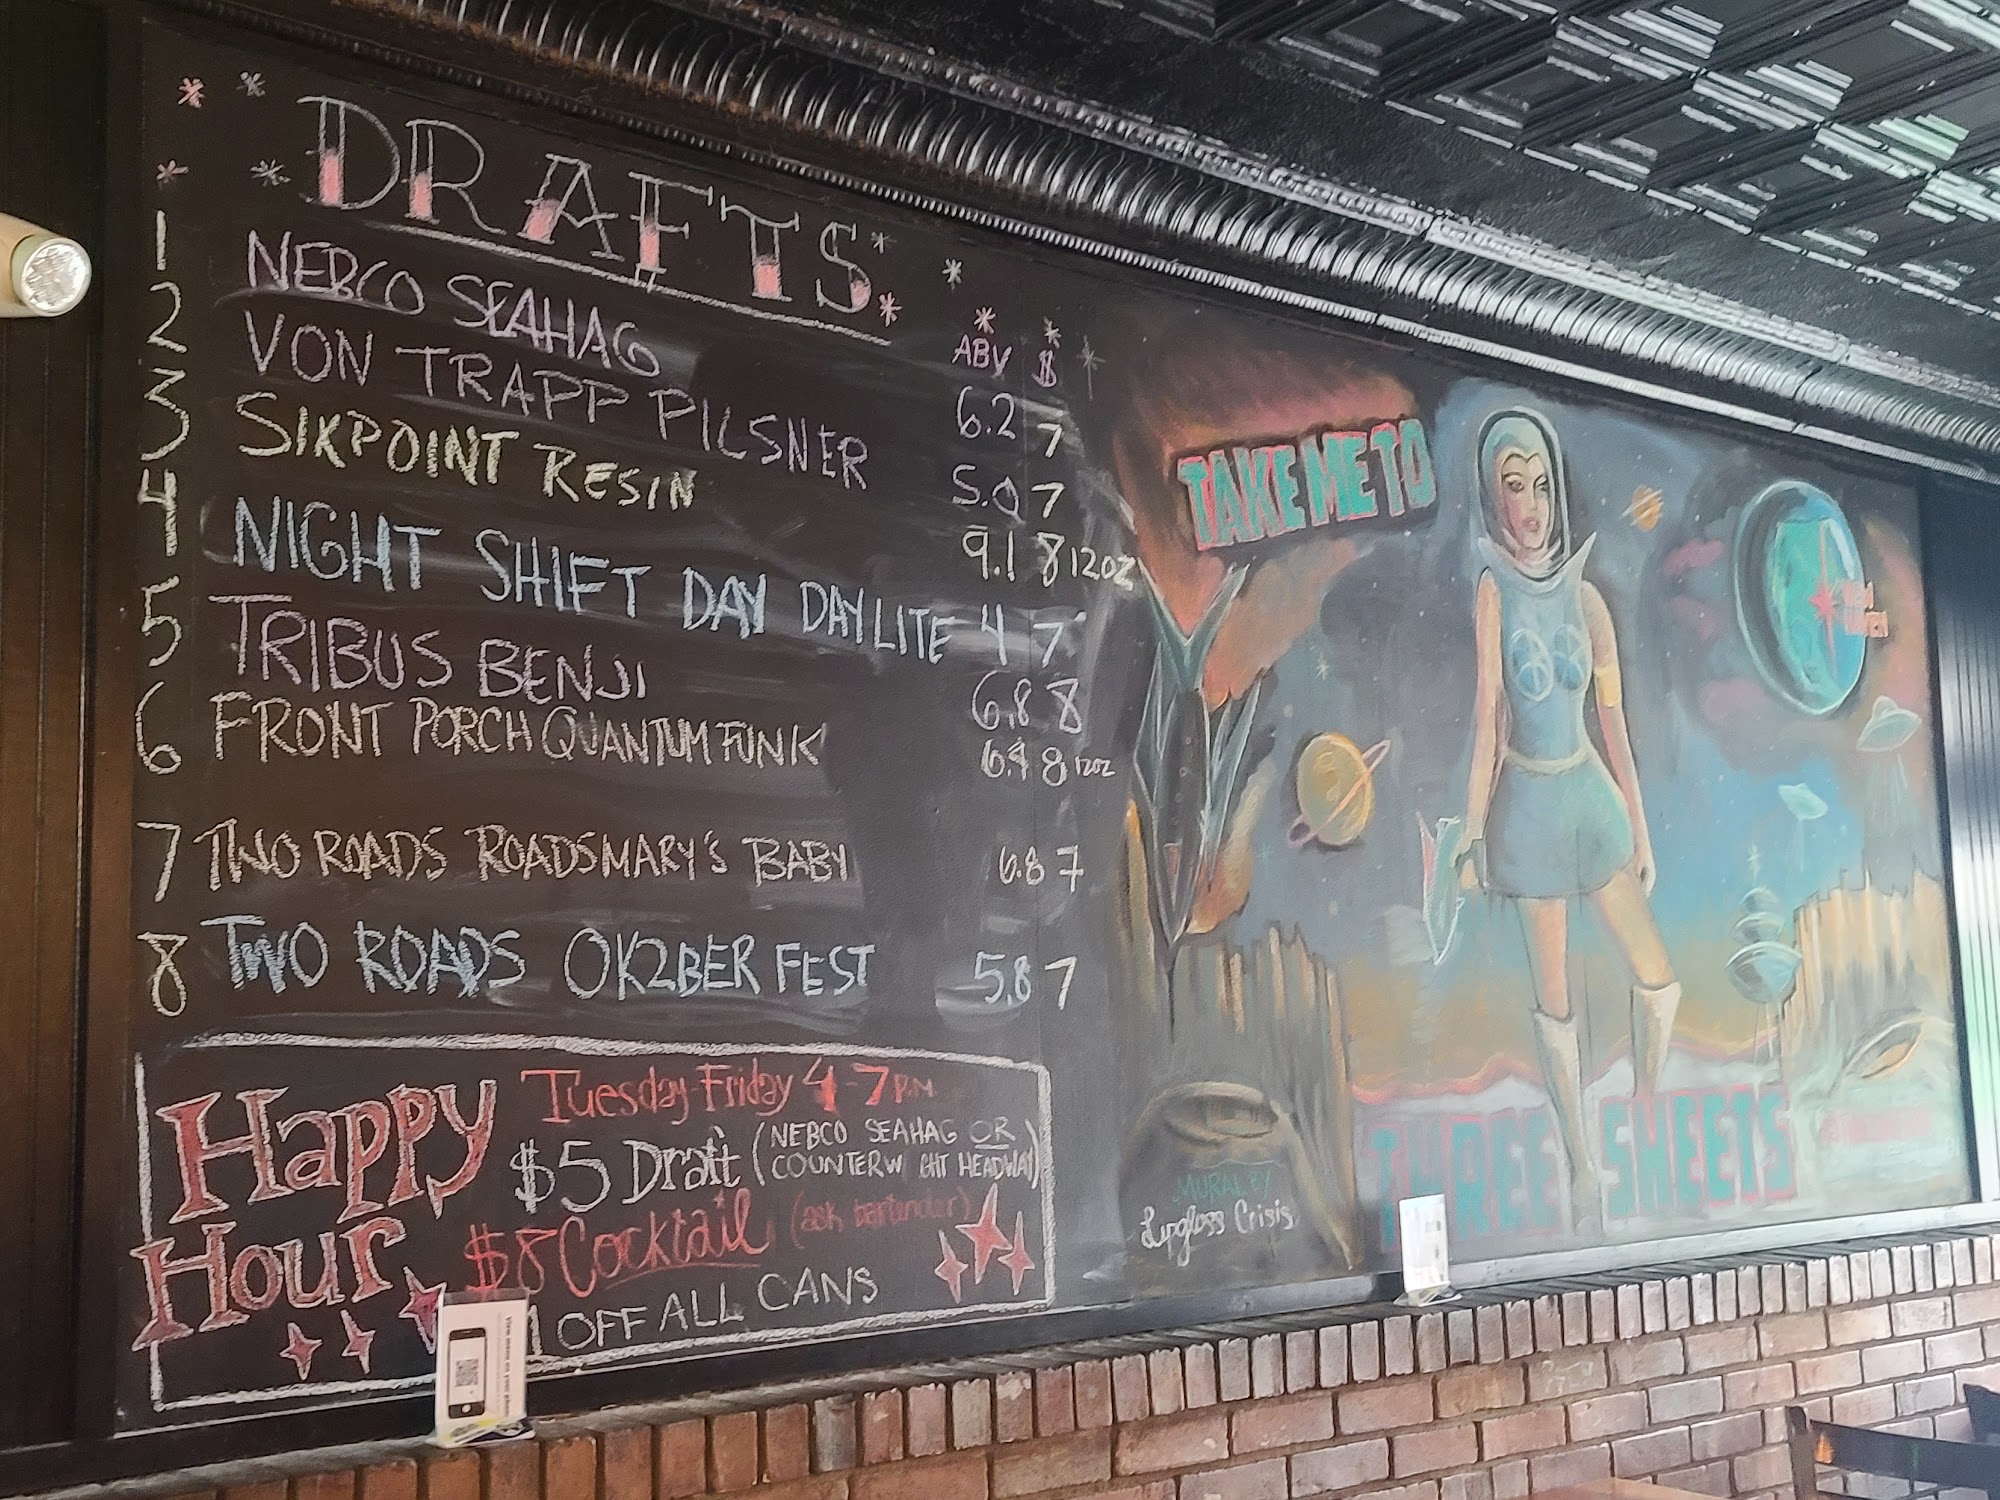 DRAFTS
ABV $
1 NEBCO SEAHAG 6.2 7
2 VON TRAPP PILSNER 5.0 7
3 SIXPOINT RESIN 9.1 8 12OZ
4 NIGHT SHIFT DAY DAYLITE 4 7
5 TRIBUS BENJI 6.8 8
6 FRONT PORCH QUANTUM FUNK 8 12OZ
7 TWO ROADS ROADSMARY'S BABY 6.8 7
8 TWO ROADS OK2BERFEST 5.8 7
Happy Hour
Tuesday-Friday 4-7PM
$5 Draft (NEBCO SEAHAG OR
COUNTERW GHT HEADWAY)
$8 Cocktail (ask bartender)
1 OFF ALL CANS
TAKE ME TO
THREE SHEETS
MURAL BY
Lipgloss Crisis